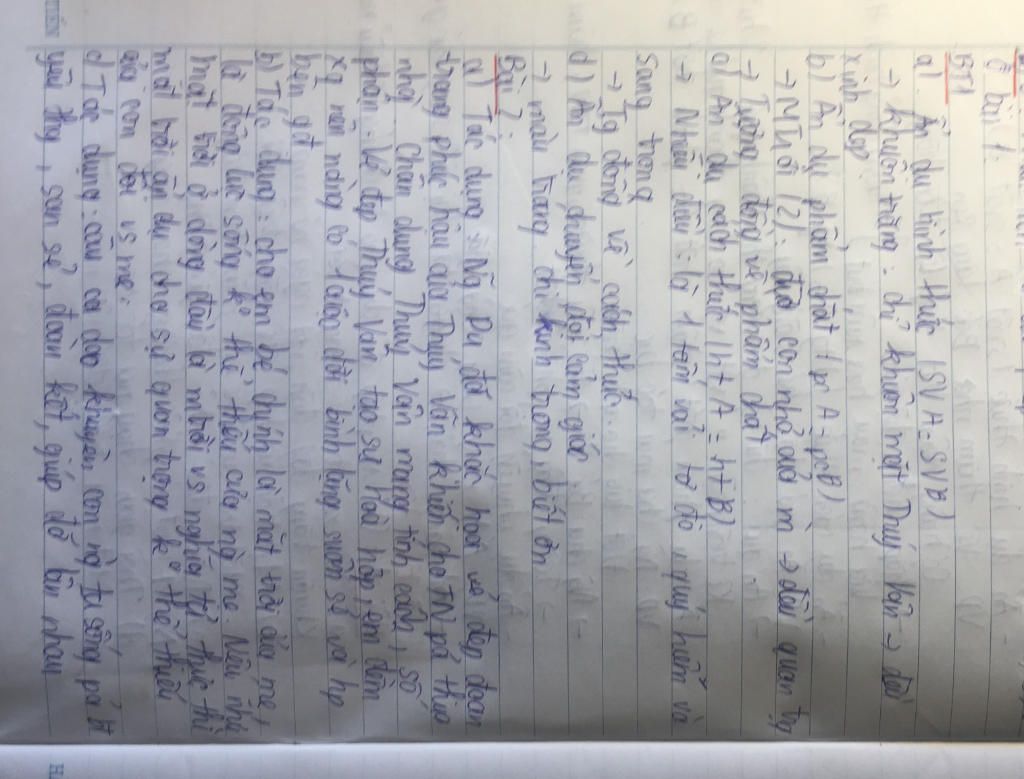 ở bài 1.
BT1
a) Ẩn dụ hình thức (SVA = SVB)
→ Khuôn trăng: chỉ khuôn mặt Thúy Vân → đều
xinh đẹp
b) Ẩn dụ phẩm chất (pc A = pcB)
→ MTrời (2): đứa con nhỏ của m → đều quan trg
→ Tương đồng về phẩm chất
c) Ẩn dụ cách thức (ht A = htB)
→ Nhiễu điều: là 1 tấm vải tơ đỏ quý hiếm và
sang trọng
→ Tg đồng về cách thức.
d) Ẩn dụ chuyển đổi cảm giác
→ màu trắng chỉ kính trọng, biết ơn
Bài 2:
a) Tác dụng: NDu đã khắc hoạ vẻ đẹp đoan
trang phúc hậu của Thúy Vân khiến cho TN pả thua
nhg. Chân dung Thúy Vân mang tính cách, số
phận. Vẻ đẹp Thúy Vân tạo sự hoà hợp, êm đềm
xq nên nàng có 1 cuộc đời bình lặng suôn sẻ và hp
b) Tác dụng: cho em bé chính là mặt trời của mẹ,
là động lực sống k thể thiếu của ng mẹ. Nếu như
mặt trời ở dòng đầu là mtrời vs nghĩa tả thực thì
mặt trời ẩn dụ cho sự quan trọng ko thể thiếu
của con đối vs mẹ.
c) Tác dụng: câu ca dao khuyên con ng ta sống pả bt
yêu thg, san sẻ, đoàn kết, giúp đỡ lẫn nhau